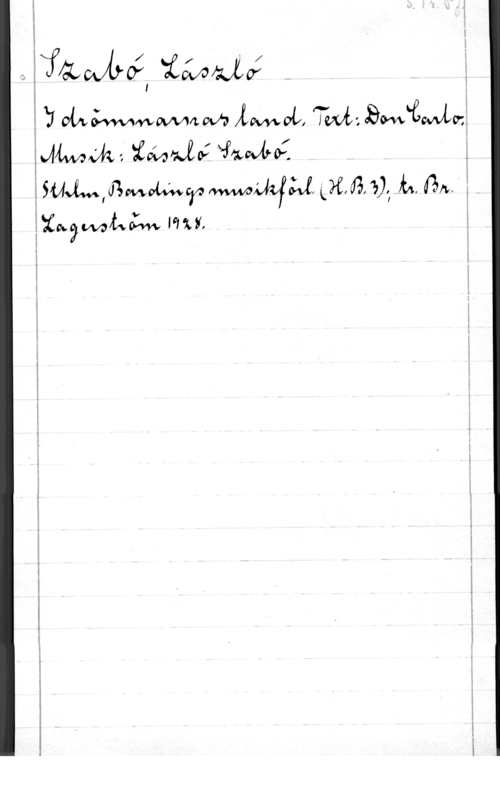 Szabó, László
I drömmarnas land. Text: Don Carlo.
Musik: László Szabó.
Sthlm, Bardings musikförl. (H.B. 3); tr. Br.
Lagerström 1928.